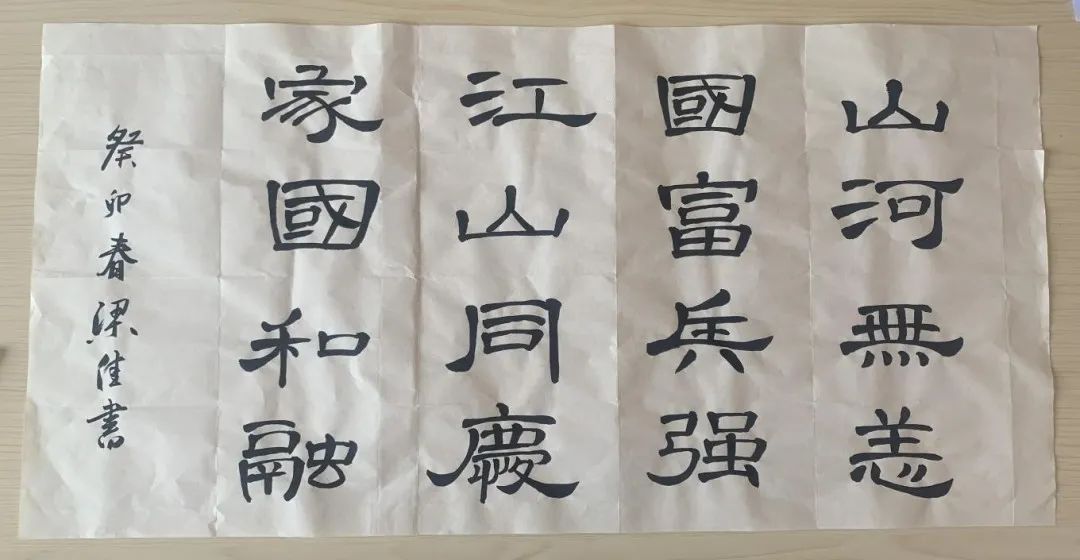 山河無恙
國富兵强
江山同慶
家國和融
癸卯春梁佳書